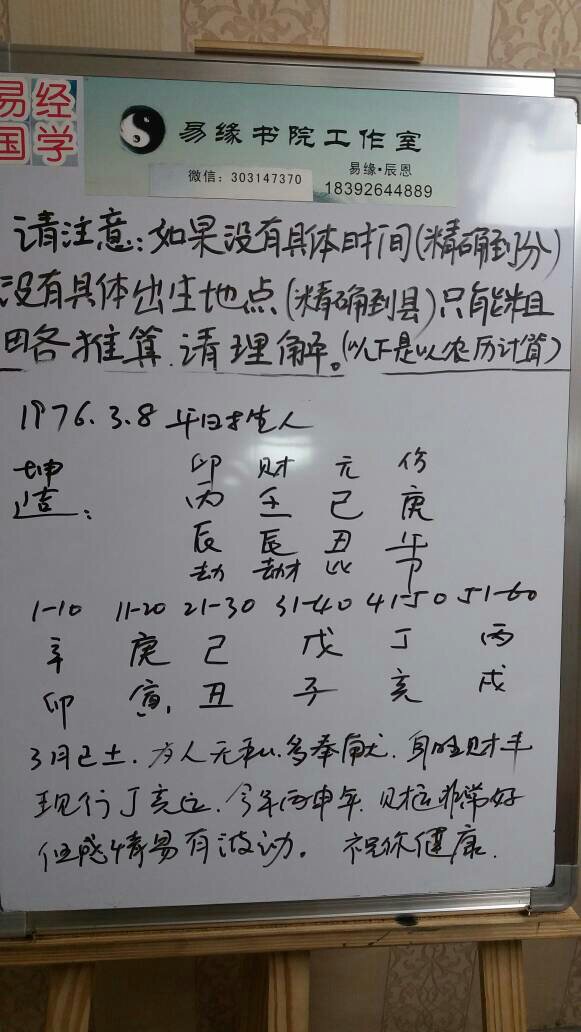 易经
国学
易缘书院工作室
微信：303147370
易缘·辰恩
18392644889
请注意：如果没有具体时间(精确到分)
没有具体出生地点(精确到县)只能粗
略推算.请理解。(以下是以农历计算)
1976.3.8 午日才生人
坤 印 财 元 伤
造： 丙 壬 己 庚
辰 辰 丑 午
劫 劫才 比 卩
1-10 11-20 21-30 31-40 41-50 51-60
辛 庚 己 戊 丁 丙
卯 寅 丑 子 亥 戌
3月己土.为人无私.多奉献.身旺财丰
现行丁亥位.今年丙申年.财运非常好
但感情易有波动。祝你健康.